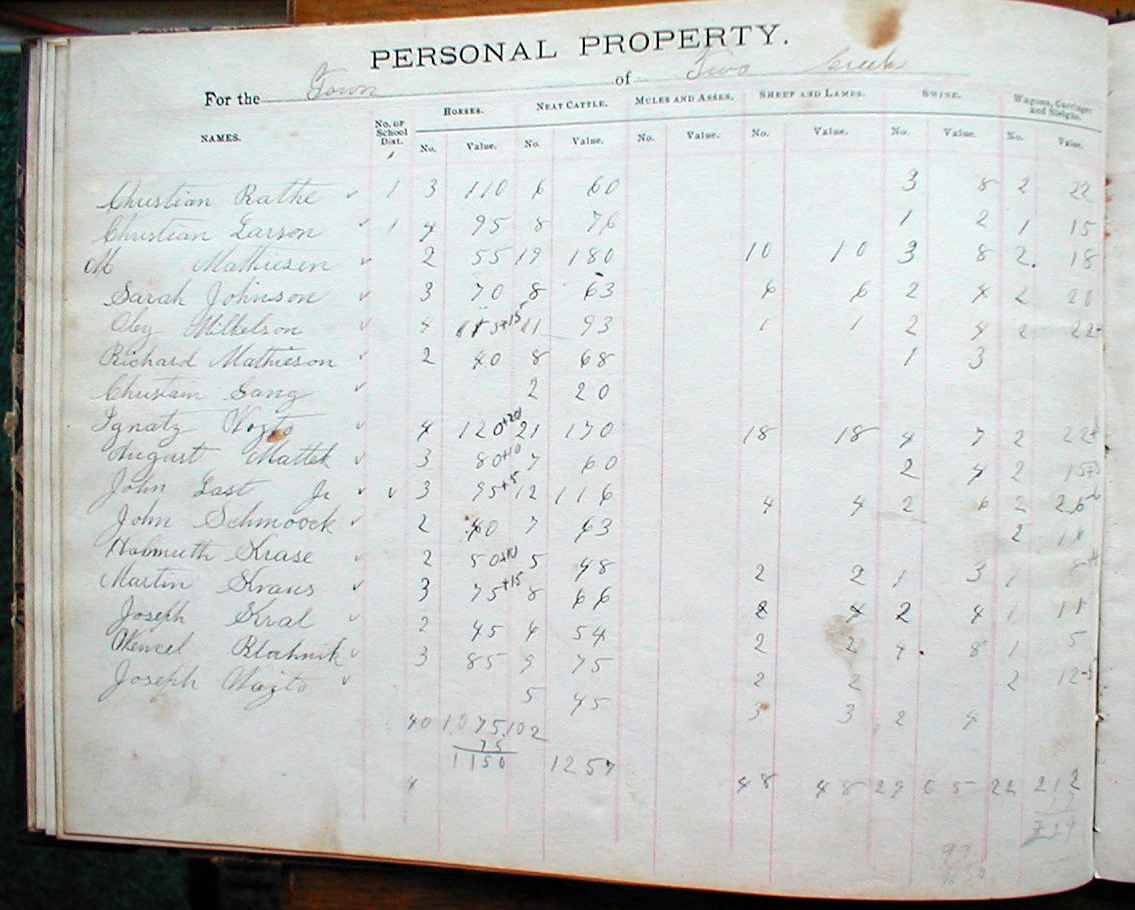 PERSONAL PROPERTY.
For the Town of Two Creek
HORSES. NEAT CATTLE. MULES AND ASSES. SHEEP AND LAMBS. SWINE. Wagons, Carriages and Sleighs.
NAMES. No. OF School Dist. No. Value. No. Value. No. Value. No. Value. No. Value. No. Value.
1
Christian Rathe ✓ 1 3 110 6 60 3 8 2 22
Christian Larson ✓ 1 4 95 8 76 1 2 1 15
M Mathiesen ✓ 2 55 19 180 10 10 3 8 2. 18
Sarah Johnson ✓ 3 70 8 63 6 6 2 4 2 20
Oley Milkelson ✓ 4 +15 11 93 1 1 2 4 2 22
Richard Mathieson ✓ 2 40 8 68 1 3
Christian Gang ✓ 2 20
Ignatz Wojto ✓ 4 120+20 21 170 18 18 4 7 2 22
August Mattek ✓ 3 80+10 7 60 2 4 2 15
John Last Jr ✓ ✓ 3 95+5 12 116 4 4 2 6 2 26
John Schmoock ✓ 2 40 7 63 2
Halmuth Krase ✓ 2 50+10 5 48 2 2 1 3 1 8
Martin Kraus ✓ 3 75+15 8 66 2 4 2 4 1 11
Joseph Kral ✓ 2 45 4 54 2 2 4 8 1 5
Wencel Blahnik ✓ 3 85 9 75 2 2 2 12
Joseph Wojto ✓ 5 45 3 3 2 4
40 1075 102
75
1150 1257
48 48 29 65 22 212